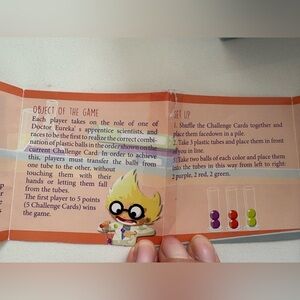 OBJECT OF THE GAME
Each player takes on the role of one of
Doctor Eureka's apprentice scientists, and
races to be the first to realize the correct combi-
nation of plastic balls in the order shown on the
current Challenge Card. In order to achieve
this, players must transfer the balls from
one tube to the other, without
touching them with their
hands or letting them fall
from the tubes.
The first player to 5 points
(5 Challenge Cards) wins
the game.
SET UP
1. Shuffle the Challenge Cards together and
place them facedown in a pile.
2. Take 3 plastic tubes and place them in front
of you in line.
3. Take two balls of each color and place them
into the tubes in this way from left to right:
2 purple, 2 red, 2 green.